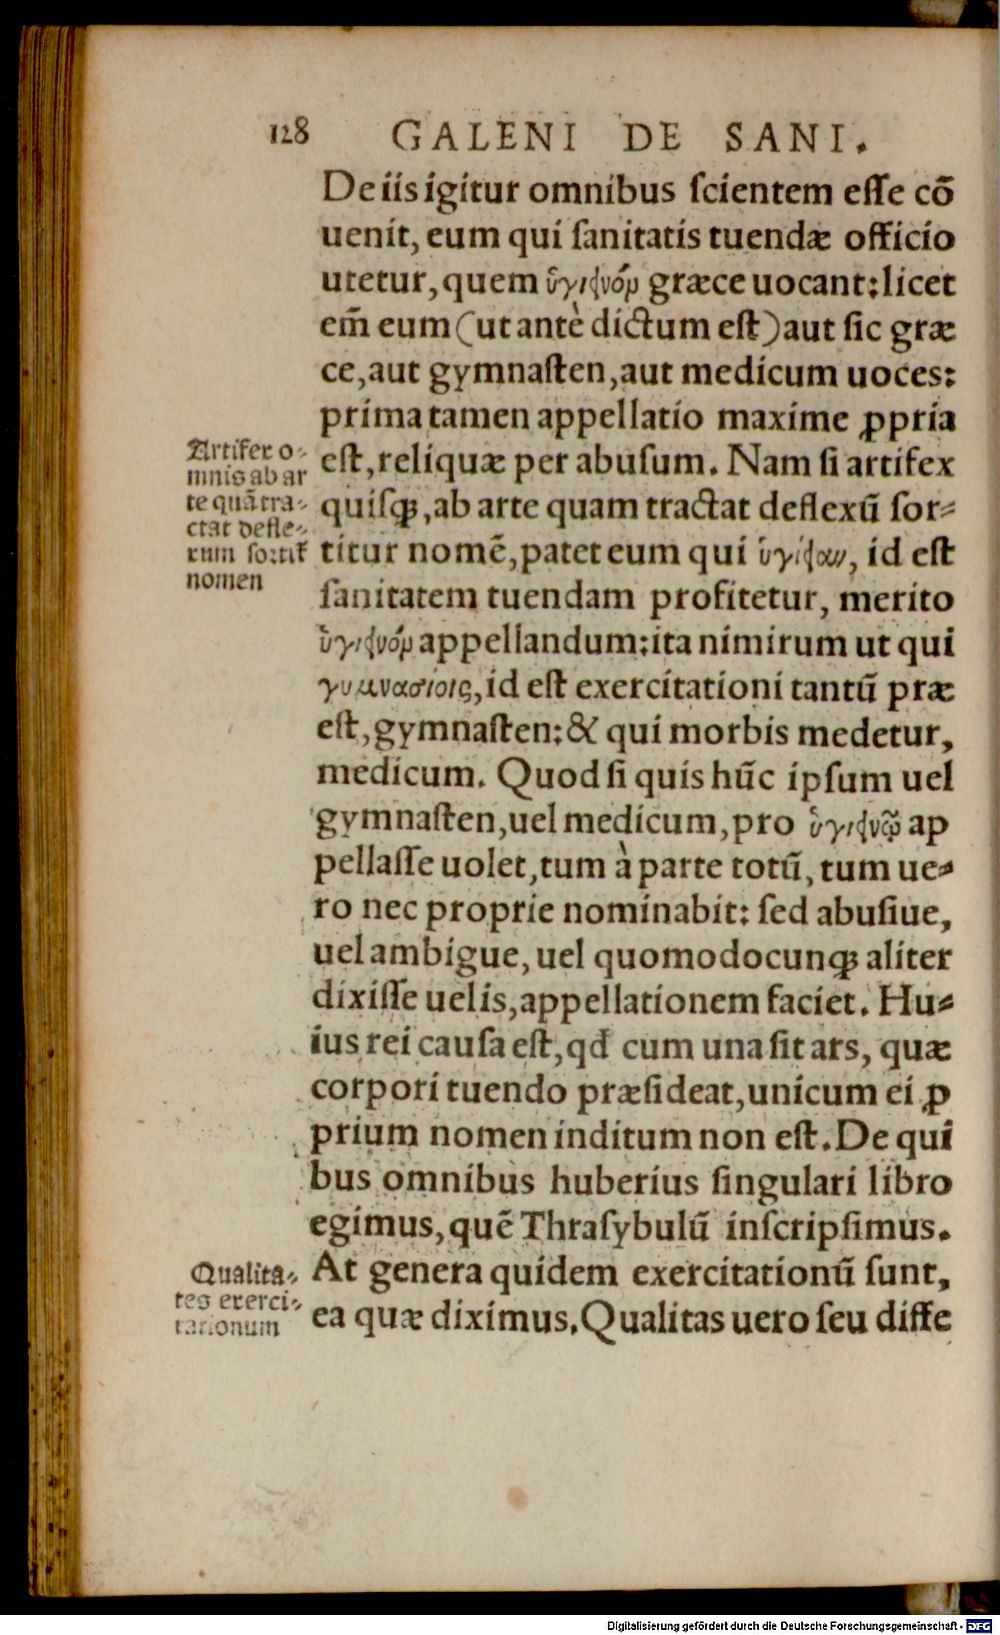 128 GALENI DE SANI.
De iis igitur omnibus ſcientem eſſe cõ
uenit, eum qui ſanitatis tuendæ officio
utetur, quem ὑγιεινόμ græce uocant: licet
em̃ eum (ut antè dictum eſt) aut ſic græ
ce, aut gymnaſten, aut medicum uoces:
prima tamen appellatio maxime ꝓpria
eſt, reliquæ per abuſum. Nam ſi artifex
quiſq;, ab arte quam tractat deflexũ ſor-
titur nomẽ, patet eum qui ὑγίειαν, id eſt
ſanitatem tuendam profitetur, merito
ὑγιεινόμ appellandum: ita nimirum ut qui
γυμνασίοις, id eſt exercitationi tantũ præ
eſt, gymnaſten: & qui morbis medetur,
medicum. Quod ſi quis hũc ipſum uel
gymnaſten, uel medicum, pro ὑγιεινῶ ap
pellaſſe uolet, tum à parte totũ, tum ue-
ro nec proprie nominabit: ſed abuſiue,
uel ambigue, uel quomodocunq; aliter
dixiſſe uelis, appellationem faciet. Hu-
ius rei cauſa eſt, qđ cum una ſit ars, quæ
corpori tuendo præſideat, unicum ei ꝓ
prium nomen inditum non eſt. De qui
bus omnibus huberius ſingulari libro
egimus, quẽ Thraſybulũ inſcripſimus.
At genera quidem exercitationũ ſunt,
ea quæ diximus. Qualitas uero ſeu diffe
Artifex o-
mnis ab ar
te quã tra-
ctat defle-
xum ſortit᷑
nomen
Qualita-
tes exerci-
tationum
Digitalisierung gefördert durch die Deutsche Forschungsgemeinschaft - DFG